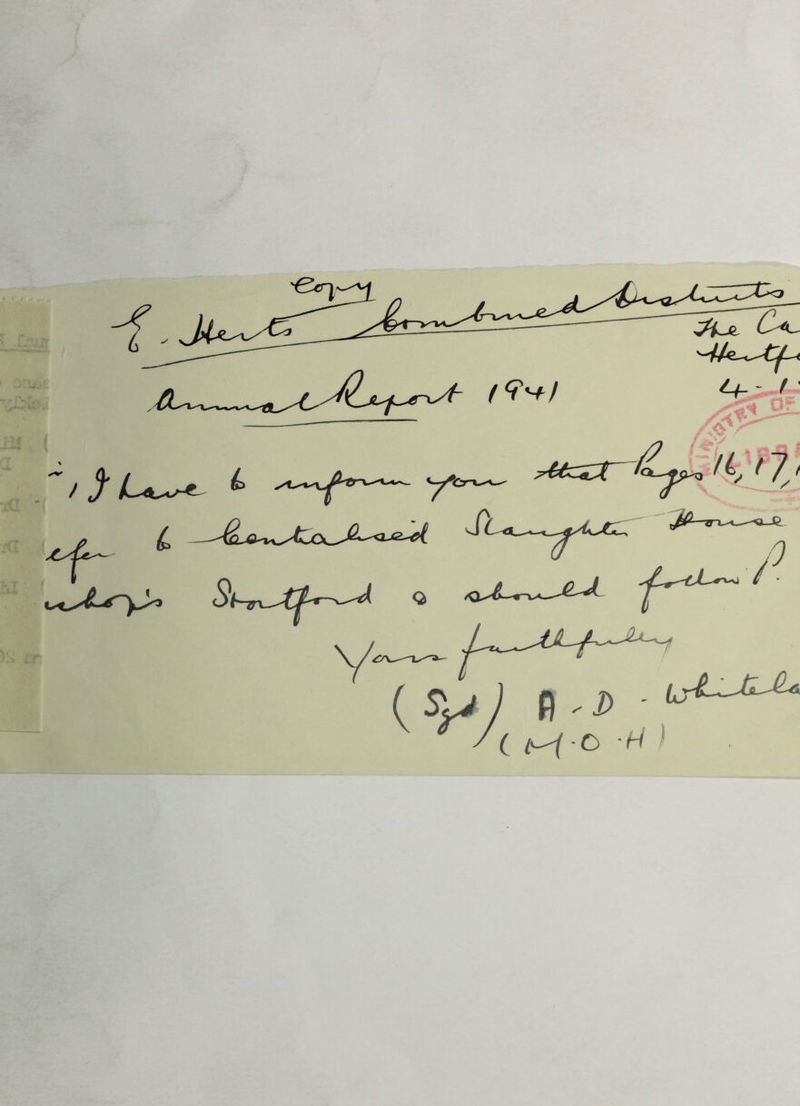 Copy
E. Herts Combined Districts
The Ca
Hertf
Annual Report 1941
4 - 1
MINISTRY OF
I have to inform you that Pages 16, 17,
efer to Centralised Slaughter House
ishop's Stortford & should follow P.
Yours faithfully
(Sgd) A. D. Whitela
(M.O.H)